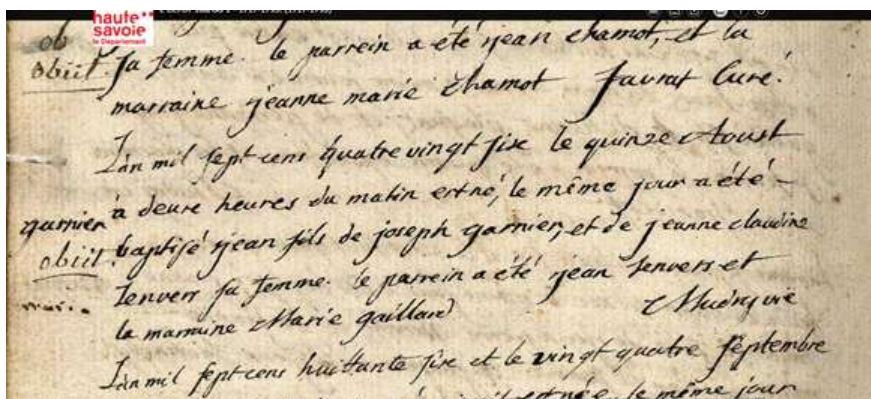 haute
savoie
le Département
ob
obiit.
sa femme. le parrein a été jean chamot, et la
marraine jeanne marie Chamot favrat Curé.
L'an mil sept cens quatre vingt sixe le quinze Aoust
à deuxe heures du matin est né, le même jour a été
garnier
obiit.
baptisé jean fils de joseph garnier, et de jeanne claudine
Jenvers sa femme. le parrein a été jean Jenvers et
la marraine Marie gaillard
L'an mil sept cens huittante sixe et le vingt quatre septembre
est née le même jour